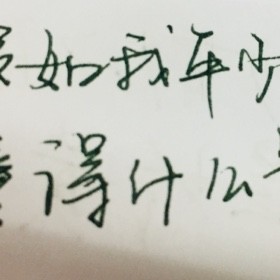 如我年少
得什么